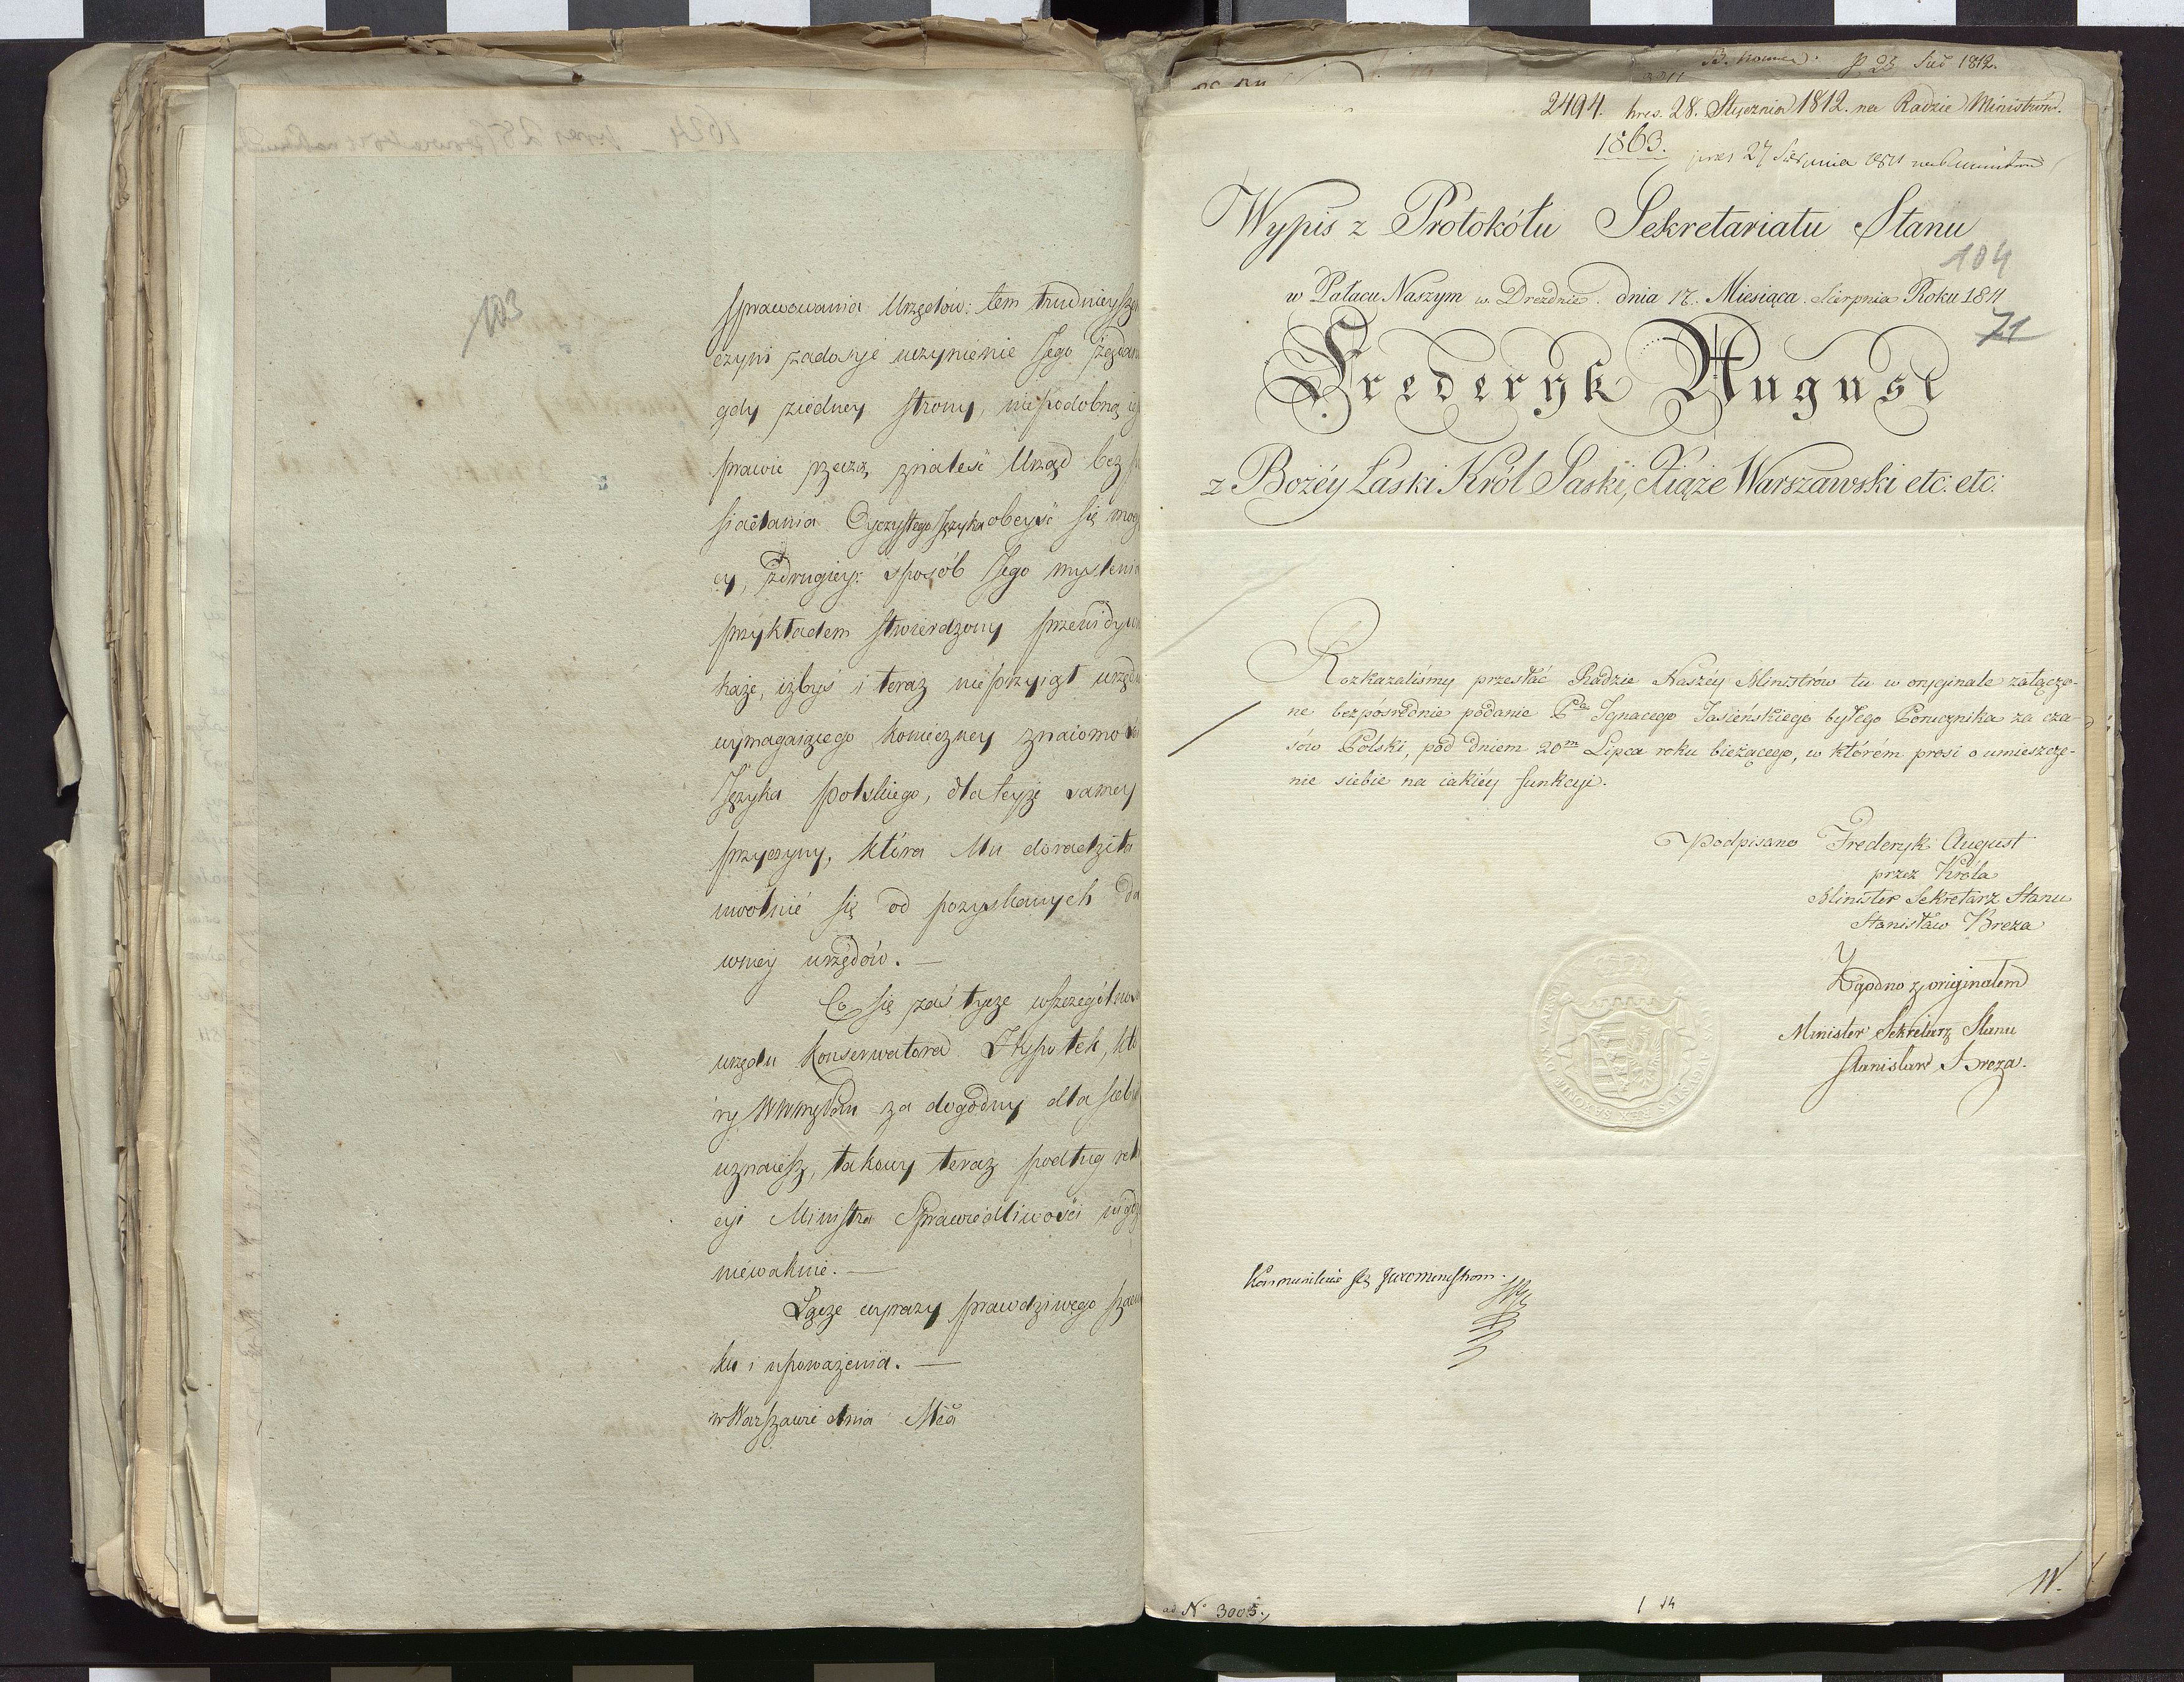 103
sprawowania Urzędów: tem trudnieysze
czyni zadosyć uczynienie Jego
gdy ziedney strony, niepodobną
prawie rzeczą znaleść Urząd bez
siadania Oyczystego Języka obeyść się mog
cy, zdrugiey: sposób Jego myslenia
przykładem stwierdzony przewidy
każe, iżbyś i teraz nieprzyiął urzędu
wymagaiącego konieczney znaiomo
Języka polskiego, dla teyże samey
przyczyny, która Mu doradziła
uwolnić się od pozyskanych da
wniey urzędów. —
Co się zaś tycze wszczególn
urzędu Konserwatora Hypotek, któ
ry WWMPan za dogodny dla siebie
uznaiesz, takowy teraz podług rel
cyi Ministra Sprawiedliwości nigdzie
niewakuie. —
Łączę wyrazy prawdziwego szacun
ku i upoważenia. —
w Warszawie dnia Mca
p 23 1812.
2494. pres. 28. Stycznia 1812. na Radzie Ministrów.
1863. pres 27 Sierpnia 1811
Wypis z Protokółu Sekretariatu Stanu
104
w Pałacu Naszym w Dreźnie. dnia 17. Miesiąca Sierpnia Roku 1811
71
Frederyk August
z Bożéy Łaski Król Saski, Xiąże Warszawski etc: etc:
Rozkazaliśmy przesłać Radzie Naszéy Ministrów tu w oryginale załączo-
ne bezpośrednie podanie Pna Ignacego Jasieńskiego byłego Porucznika za cza-
sów Polski, pod dniem 20m Lipca roku bieżącego, w którém prosi o umieszcze-
nie siebie na iakiéy funkcyi.
Podpisano Frederyk August
przez Króla
Minister Sekretarz Stanu
Stanisław Breza
Zgodno z originałem
Minister Sekretarz Stanu
Stanisław Breza.
ad No 3005.,
1 14
W.